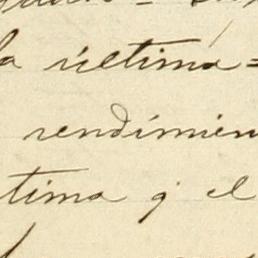 la última=
rendimien
tima q. el